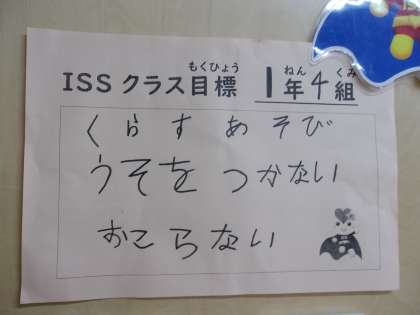 もくひょう ねん くみ
ISS クラス目標 1年4組
くらすあそび
うそをつかない
おこらない